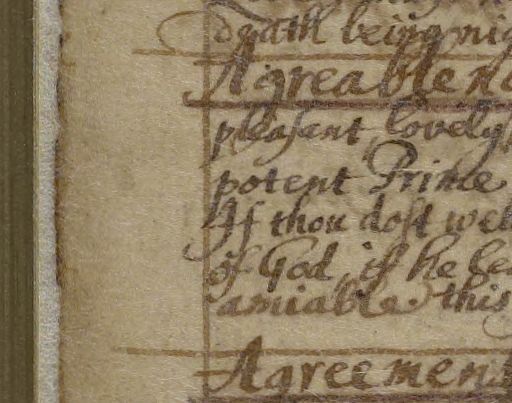 Death being nig
Agreablen
pleasant, lovely
potent Prime
If thou dost wel
of God, if he be
amiable. this
Agreement